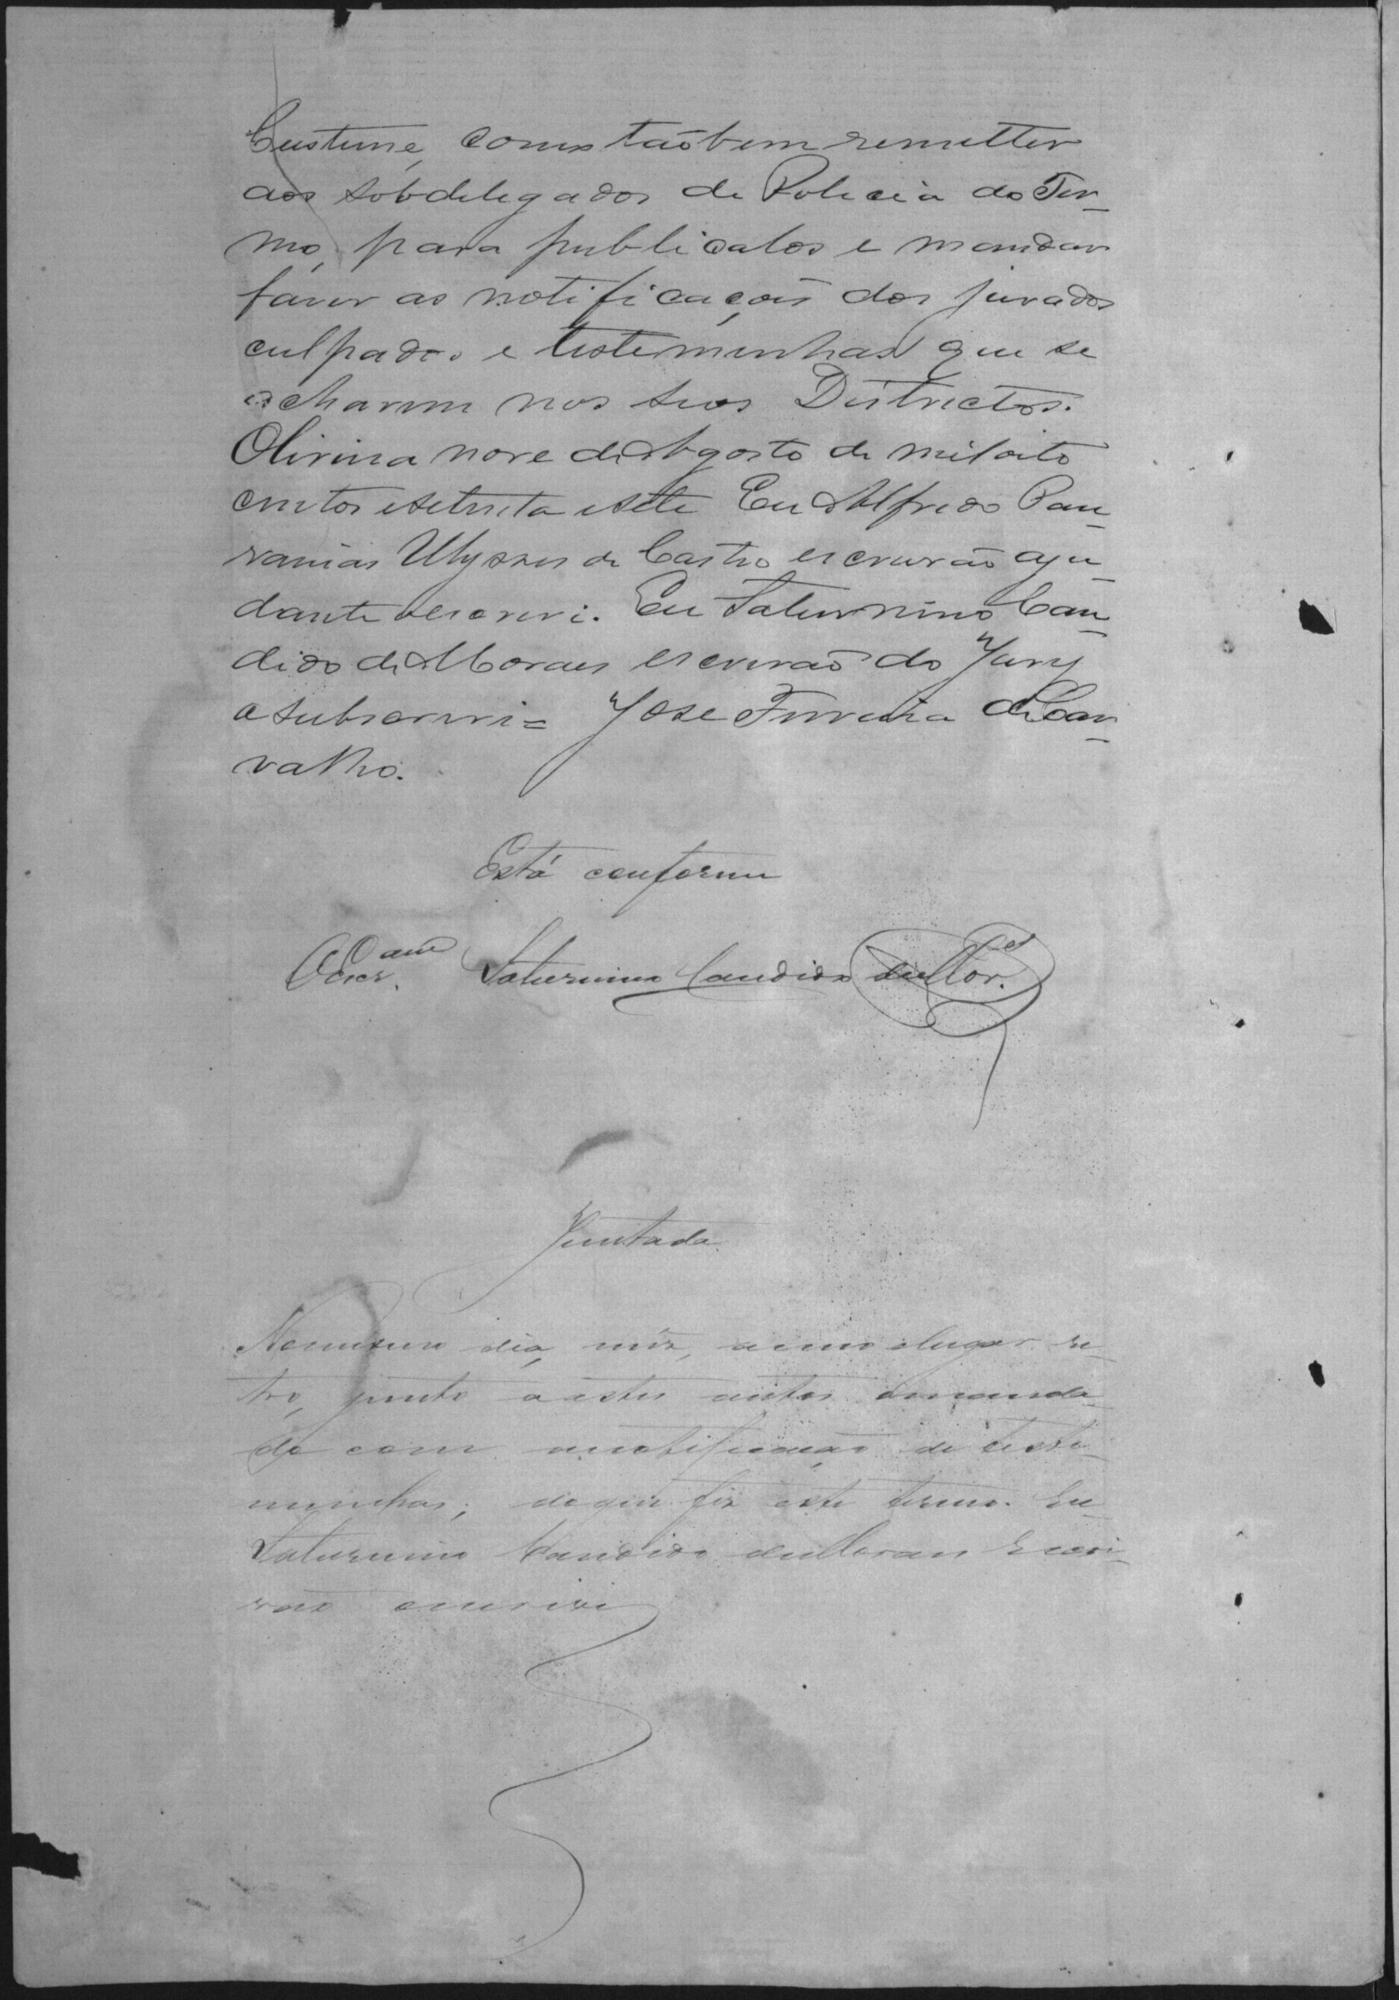 Custume, como taõbem remetter
aos subdelegados de Policia do Ter-
mo, para publicalos e mandar
faser as notificaçois dos jurados
culpados e testeminhas que se
acharem nos seos Districtos.
Olivina nove de Agosto de mil oito
centos esetenta esete Eu Alfredo Pau-
ranias Ulysses de Castro escrivão aju-
dante oescrevi. Eu Saturnino Can-
dido de Moraes escrivaõ do Jury
osubscrevi = José Ferreira de Car-
valho.
Está conforme
O Escr.am Saturnino Candido de Mor.es
Juntada
No mesmo dia, mez, anno elugar re-
tro, junto a estes autos omanda-
do com anotificação de teste-
munhas; do que fiz este termo. Eu
Saturnino Candido de Moraes Escri-
vaõ oescrevi